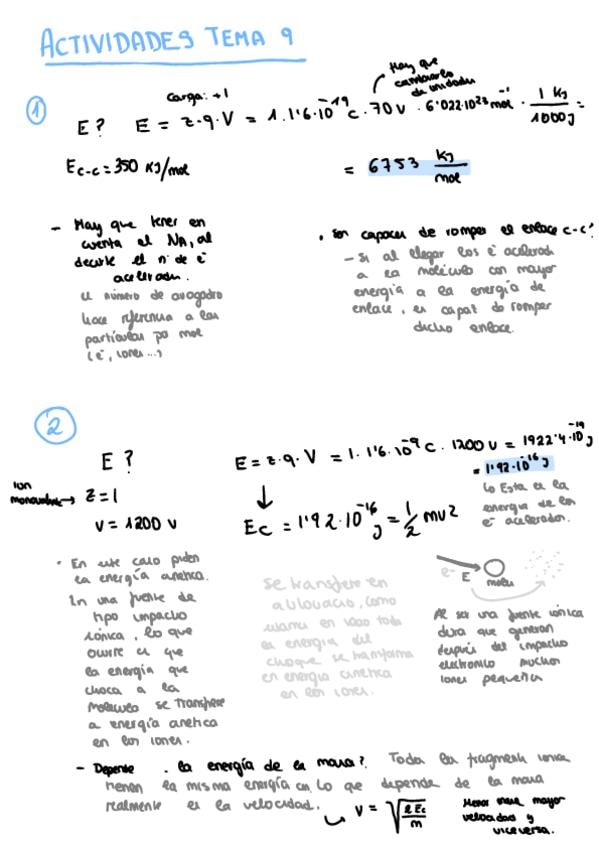 ACTIVIDADES TEMA 9
Hay que
cambiarlo
de unidades
Carga: +1
① E? E = z·q·V = 1·1'6·10⁻¹⁹ c · 70 V · 6'022·10²³ mol⁻¹ · 1 kJ / 1000 J =
E c-c = 350 KJ/mol
= 6753 KJ/mol
- Hay que tener en
cuenta el NA, al
decirte el nº de e⁻
acelerados.
El número de avogadro
hace referencia a las
partículas por mol
(e⁻, iones...)
• Son capaces de romper el enlace c-c?
- Si al llegar los e⁻ acelerad
a la molécula con mayor
energía a la energía de
enlace, es capaz de romper
dicho enlace.
②
E?
ion
→ z = 1
V = 1200 V
E = z·q·V = 1·1'6·10⁻⁹ c · 1200 V = 1922'4·10⁻¹⁹ J
= 1'92·10⁻¹⁶ J
↳ Esta es la
energía de los
e⁻ acelerados.
↓
Ec = 1'92·10⁻¹⁶ J = 1/2 mv2
• En este caso piden
la energía cinética.
En una fuente de
tipo impacto
iónica, lo que
ocurre es que
la energía que
choca a la
molécula se transfiere
a energía cinética
en los iones.
se transfiere en
como
estamos en vacío toda
la energía del
choque se transforma
en energía cinética
en los iones.
e⁻ E molec
Al ser una fuente iónica
dura que generan
después del impacto
electrónico muchos
iones pequeños
- Depende · la energía de la masa? Todos los fragment iones
tienen la misma energía con lo que depende de la masa
realmente es la velocidad. ↳ V = √(2Ec/m)
Menor masa mayor
velocidad y
viceversa.